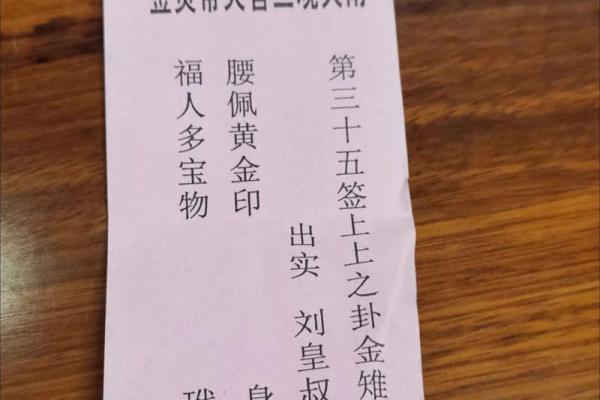 第三十五签上上之卦金雉
出实 刘皇叔
腰佩黄金印 身
福人多宝物